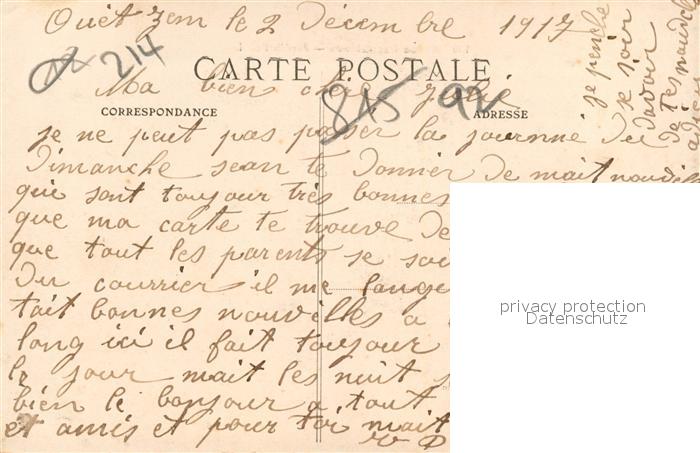 Ouèt Zem le 2 Décembre 1917
214
CARTE POSTALE
Ma bien cher
815 92
CORRESPONDANCE
ADRESSE
je ne peut pas passer la journné du
Dimanche sean te donner de mait nouvelle
que sont toujour très bonnes
que ma carte te trouve de
que tout les parents se soi
du courrier il me lange
tait bonnes nouvélles a
long ici il fait toujour
le jour mait les nuit
bien le bonjour a tout
et amis et pour toi mait
je penche
se soir
davoir
de tes
nouvel
privacy protection
Datenschutz